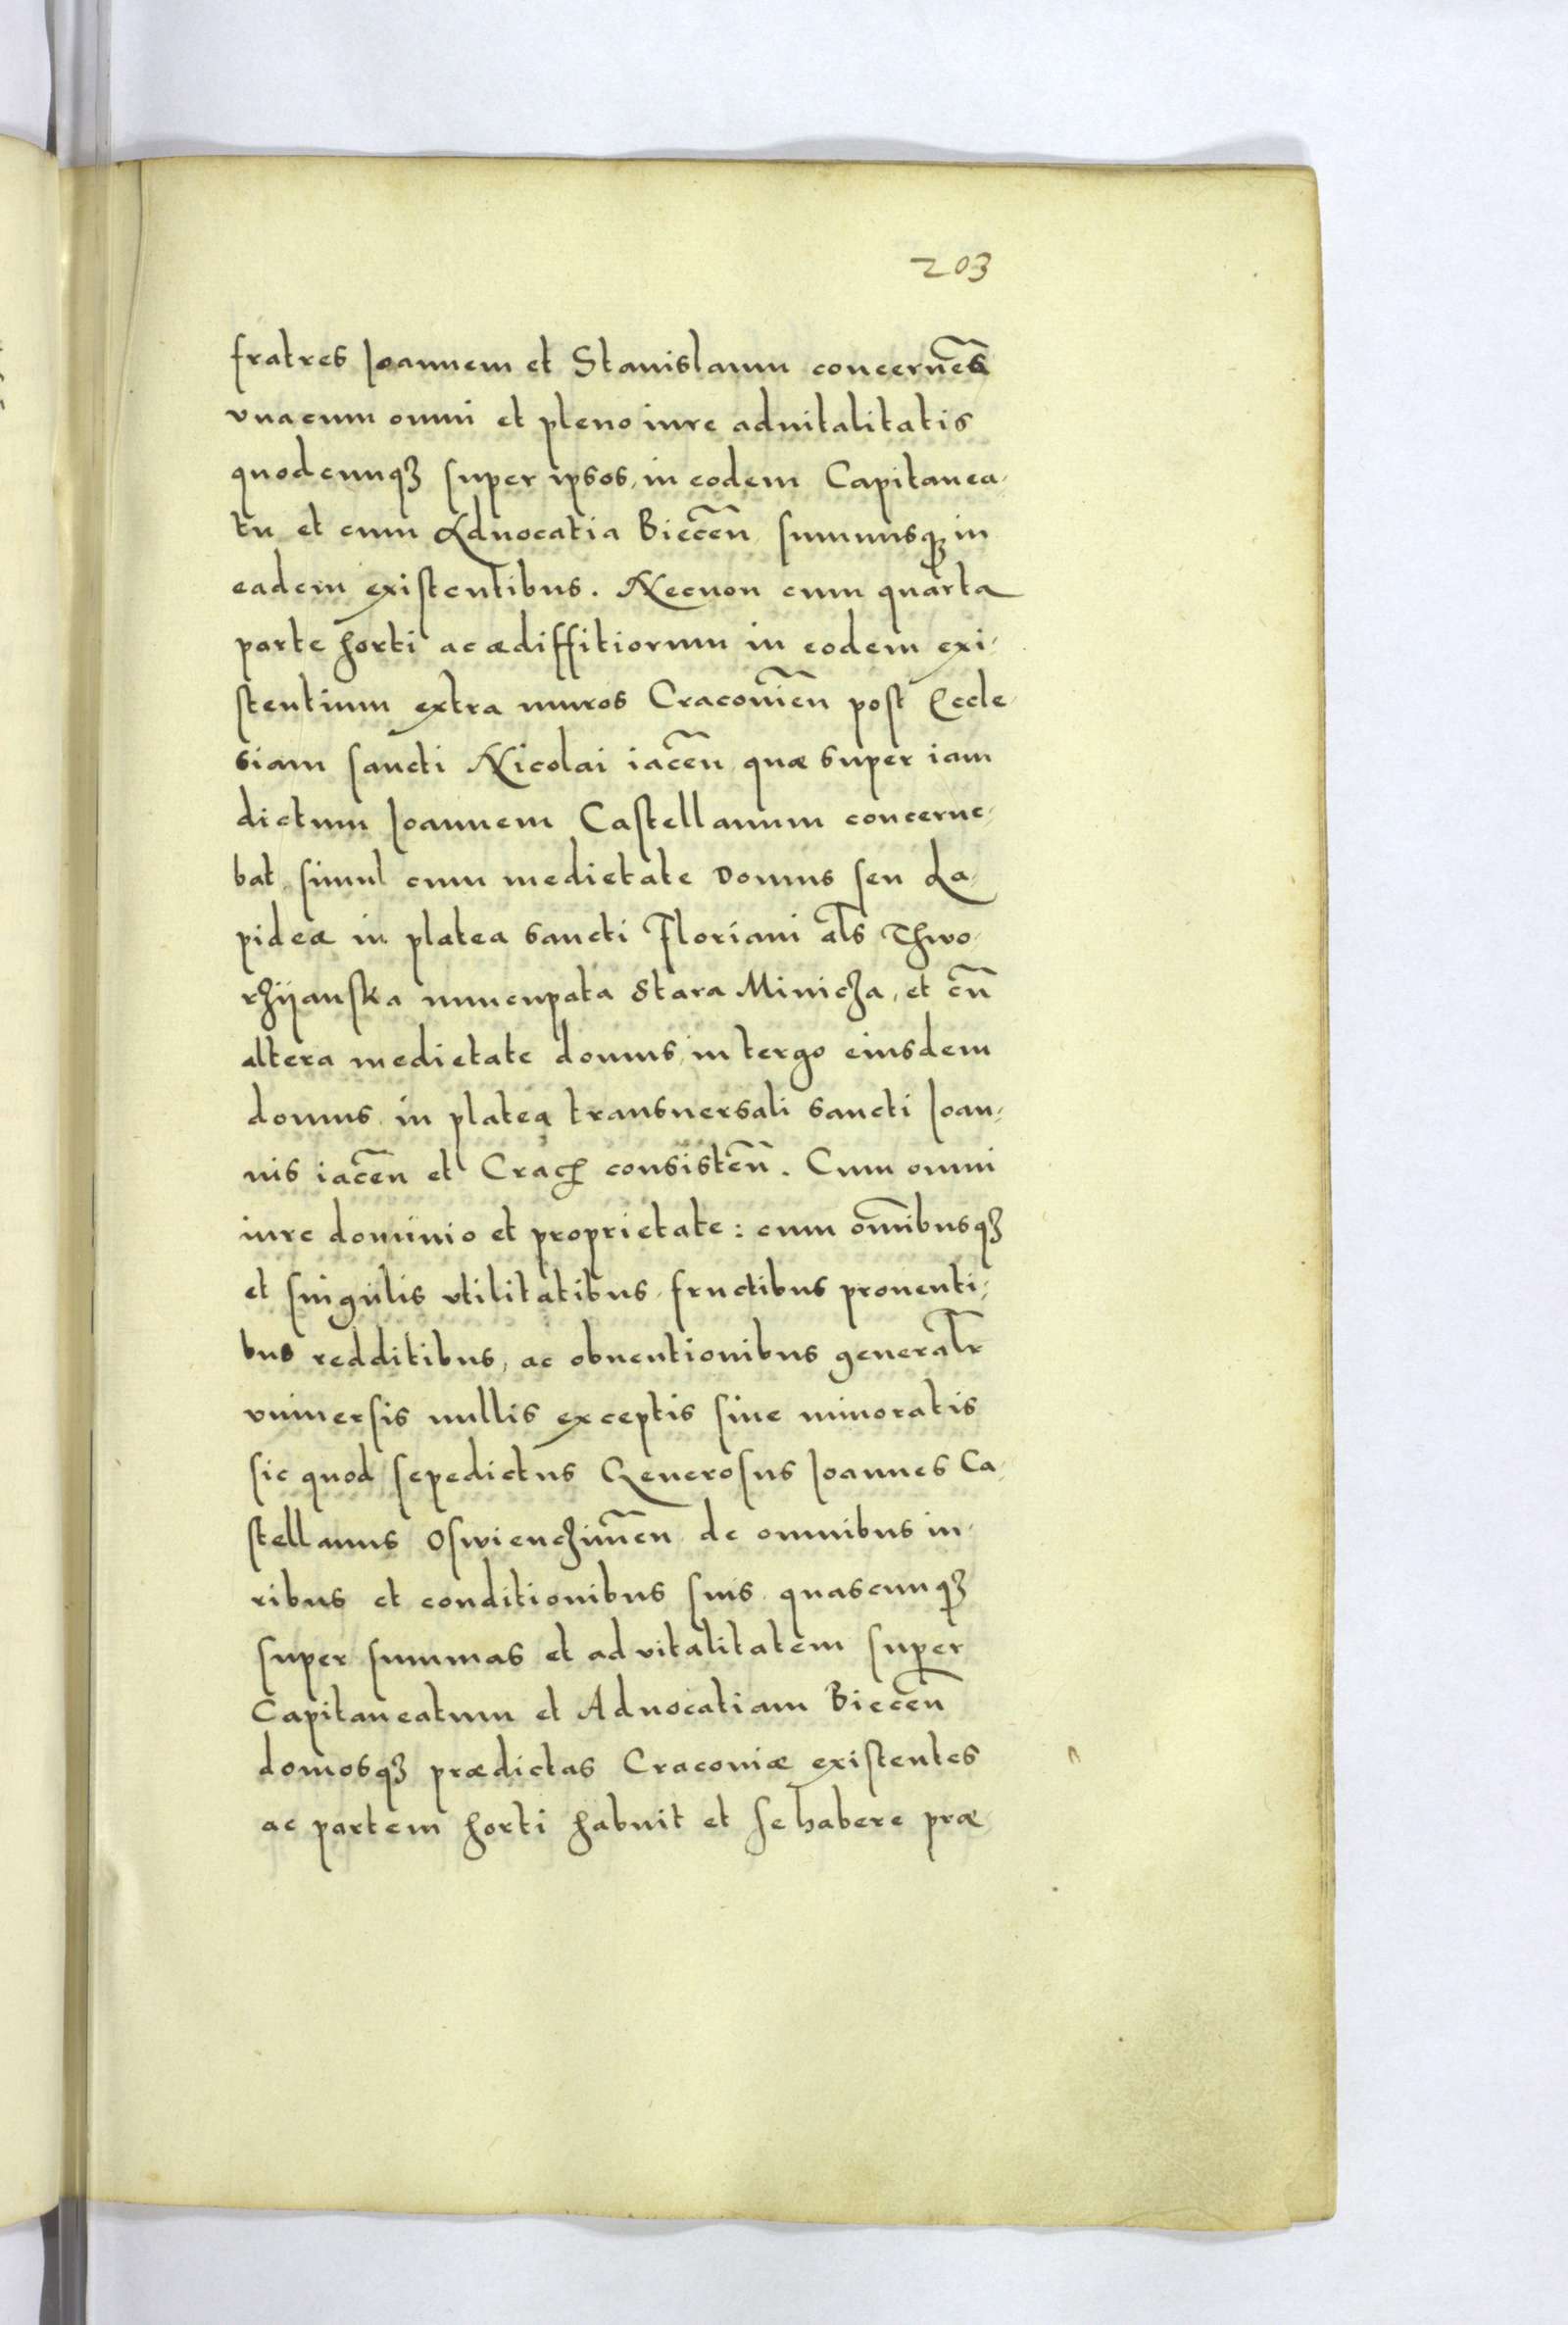 203
fratres Joannem et Stanislaum concerneñ
vnacum omni et pleno iure aduitalitatis
quodcunq₃ super ipsos, in eodem Capitanea-
tu et cum Aduocatia Biecen̄ summisq₃ in
eadem existentibus. Necnon cum quarta
parte horti ac ædiffitiorum in eodem exi-
stentium extra muros Cracouien̄ post Eccle-
siam sancti Nicolai iacen̄ quæ super iam
dictum Joannem Castellanum concerne-
bat simul cum medietate Domus seu La-
pideæ in platea sancti Floriani al̄s Thwo-
rzijanska nuncupata Stara Minicza, et cū
altera medietate domus in tergo eiusdem
domus in platea transuersali sancti Joan-
nis iacen̄ et Crac̄ consisten̄. Cum omni
iure dominio et proprietate: cum om̄ibusq₃
et singulis vtilitatibus fructibus prouenti-
bus redditibus, ac obuentionibus generalr̄
vniuersis nullis exceptis siue minoratis
sic quod sepedictus Generosus Joannes Ca-
stellanus Oswiencʒimen̄ de omnibus iu-
ribus et conditionibus suis quascunq₃
super summas et advitalitatem super
Capitaneatum et Aduocatiam Biecen̄
domosq₃ prædictas Cracouiæ existentes
ac partem horti habuit et se habere præ